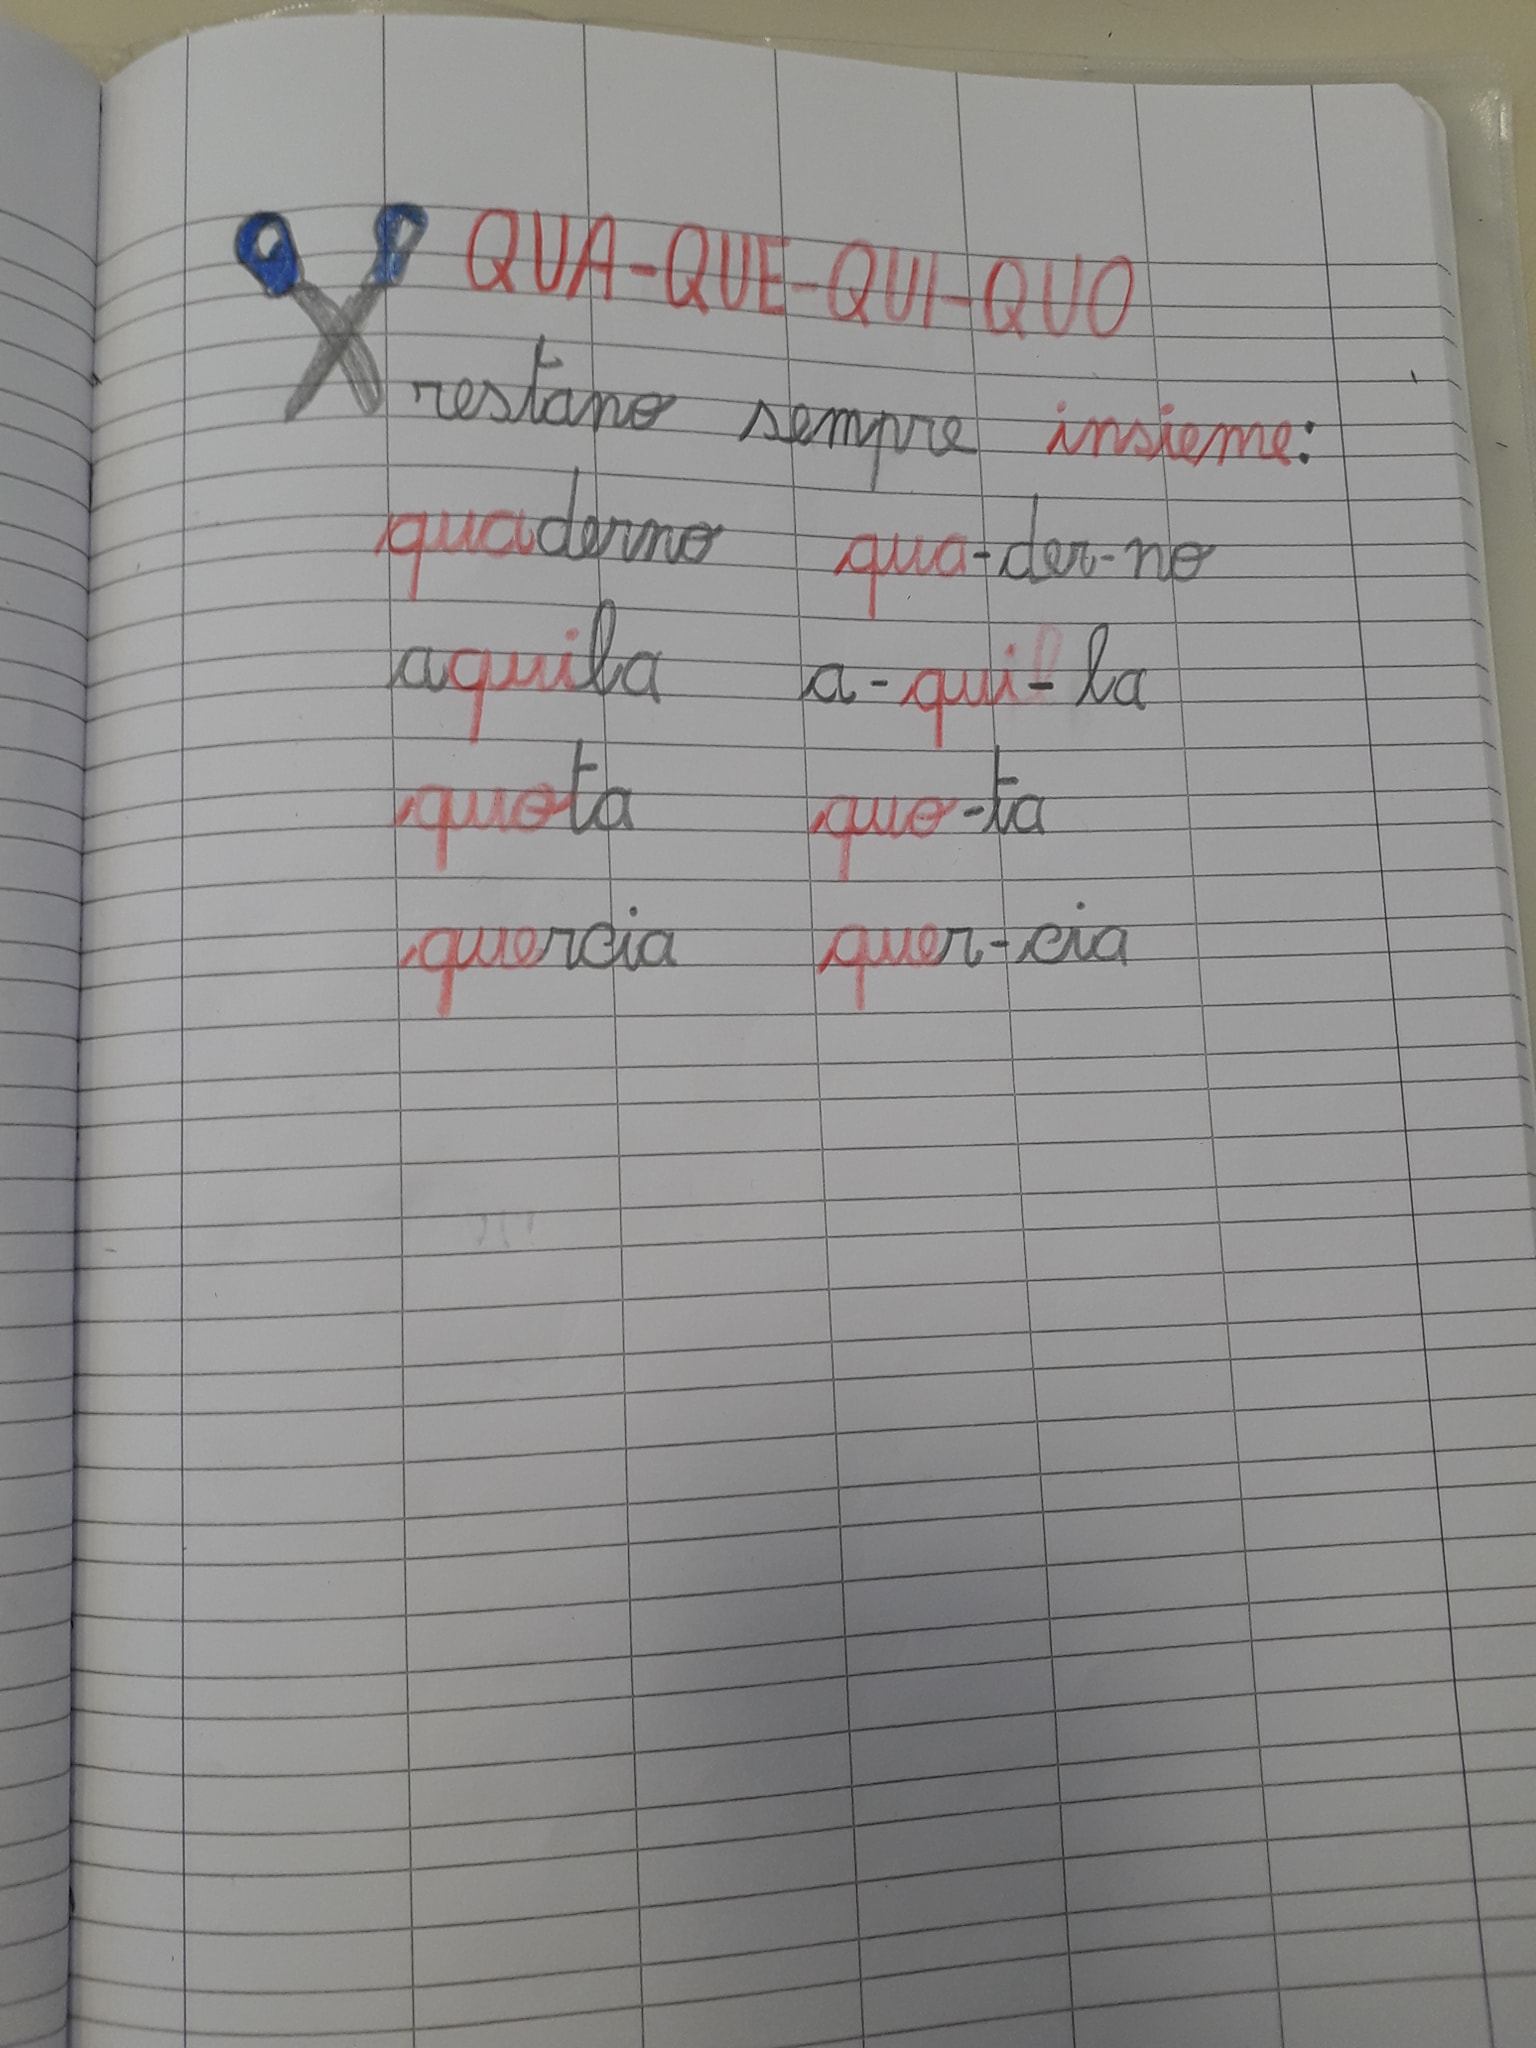 QUA-QUE-QUI-QUO
restano sempre insieme:
quaderno qua-der-no
aquila a-qui-la
quota quo-ta
quercia quer-cia